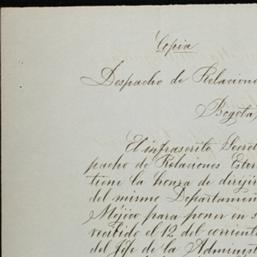 Copia
Despacho de Relacion
Bogotá,
El infrascrito Secret
pacho de Relaciones Exter
tiene la honra de dirijir
del mismo Departamen
Méjico para poner en s
recibido el 12 del corrient
del Jefe de la Administ